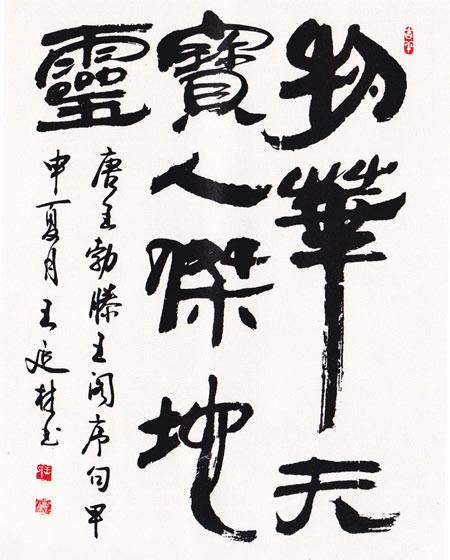 物華天
寶人傑地
靈
唐王勃滕王阁序句甲
申夏月王延林书